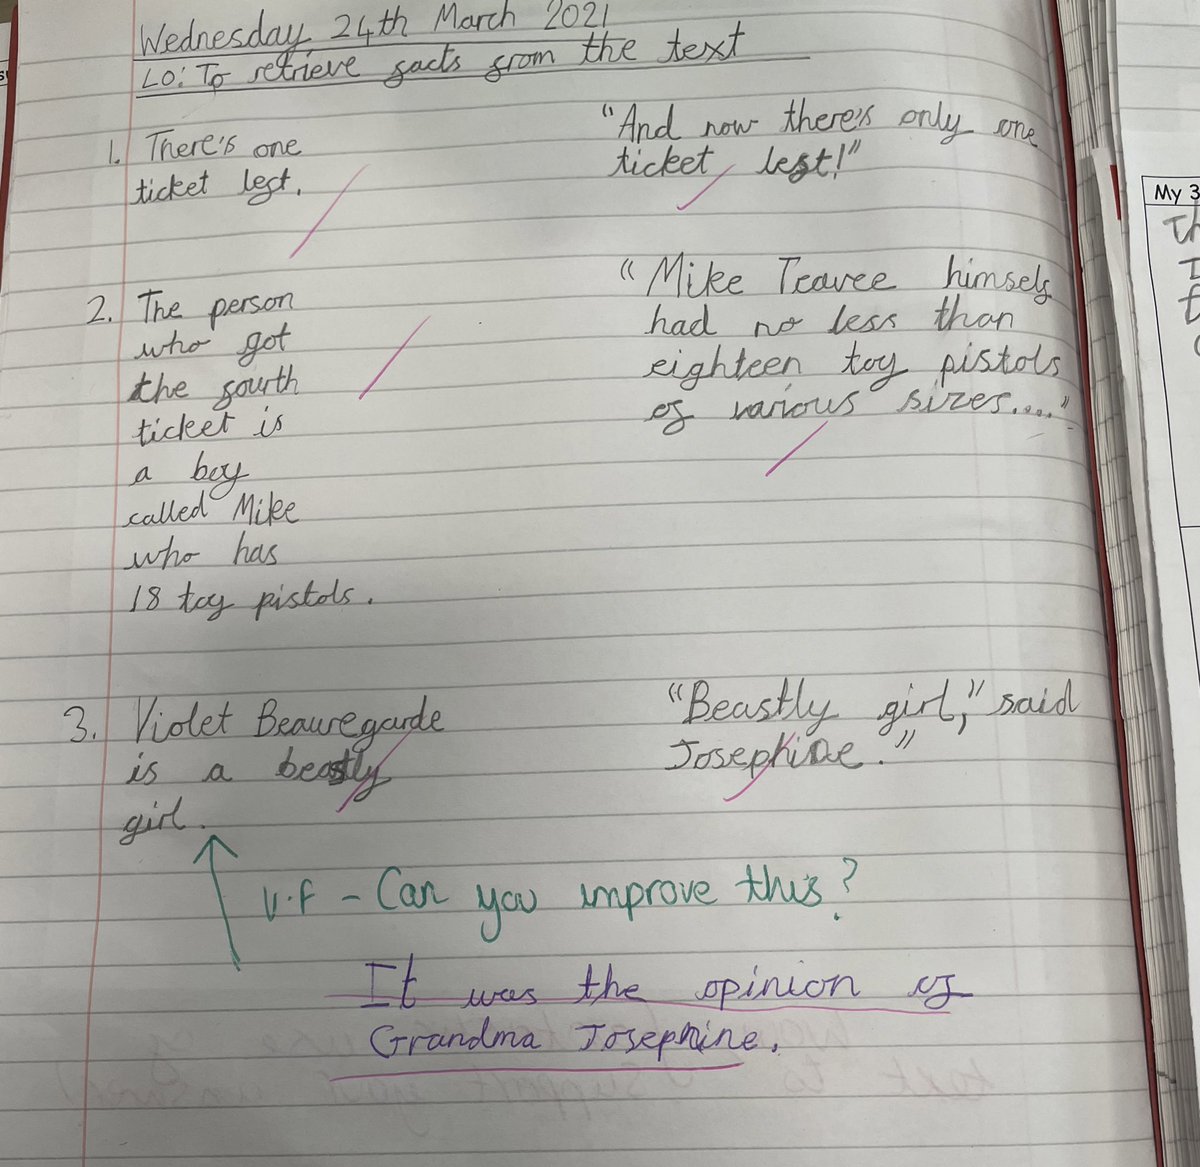 Wednesday 24th March 2021
LO: To retrieve facts from the text
1. There's one
ticket left.
"And now there's only one
ticket left!"
2. The person
who got
the fourth
ticket is
a boy
called Mike
who has
18 toy pistols.
"Mike Teavee himself
had no less than
eighteen toy pistols
of various sizes...."
3. Violet Beauregarde
is a beastly
girl.
"Beastly girl," said
Josephine."
V.F - Can you improve this?
It was the opinion of
Grandma Josephine.
My 3